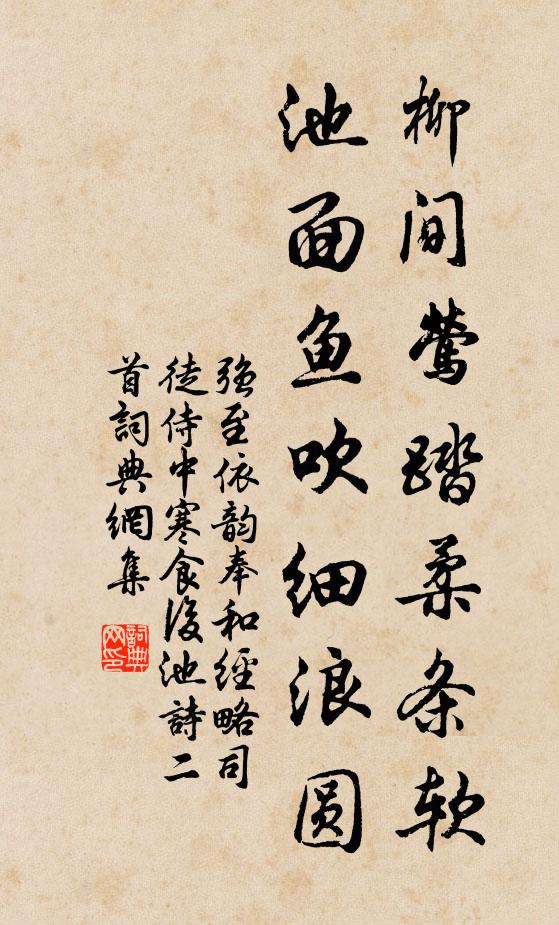 柳间莺踏柔条软
池面鱼吹细浪圆
强至依韵奉和經略司
徒侍中寒食後池詩二
首詞典網集
詞典網印